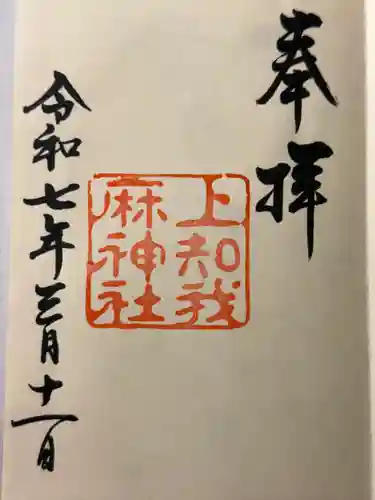 奉拝
上知我
麻神社
令和七年三月十一日